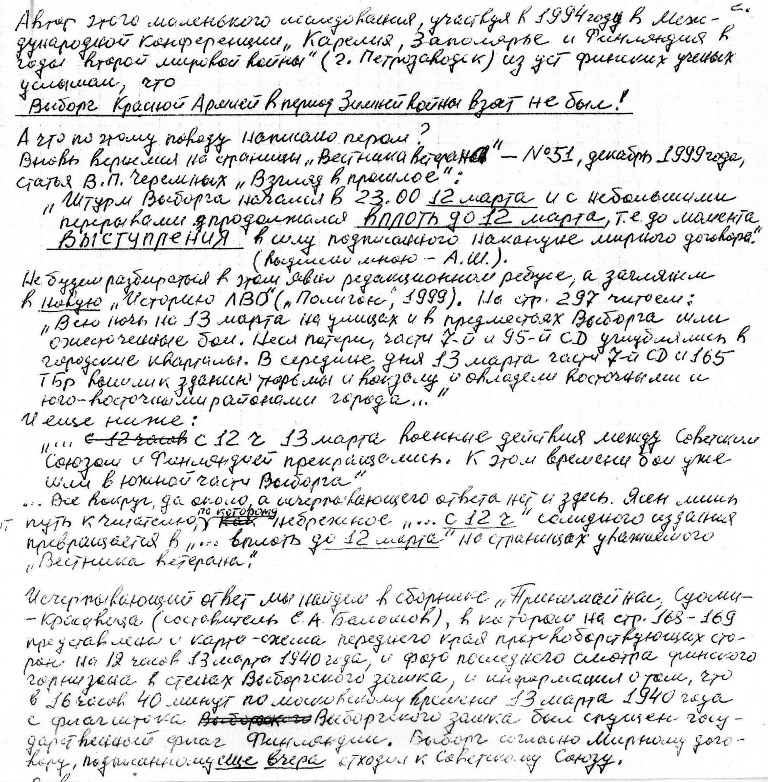 Автор этого маленького исследования, участвуя в 1994 году в Меж-
дународной Конференции „Карелия, Заполярье и Финляндия в
годы второй мировой войны" (г. Петрозаводск) из уст финских ученых
услышал, что
Выборг Красной Армией в период Зимней войны взят не был!
А что по этому поводу написано пером?
Вновь вернемся на страницы „Вестника ветерана" – №51, декабрь 1999 года,
статья В.П. Черемных „Взгляд в прошлое":
„Штурм Выборга начался в 23.00 12 марта и с небольшими
перерывами продолжался вплоть до 12 марта, т.е до момента
выступления в силу подписанного накануне мирного договора."
(Выделено мною – А.Ш.).
Не будем разбираться в этом явно редакционном ребусе, а заглянем
в новую „Историю ЛВО" („Полигон", 1999). На стр. 297 читаем:
„Всю ночь на 13 марта на улицах и в предместьях Выборга шли
ожесточенные бои. Неся потери, части 7-й и 95-й СД углублялись в
городские кварталы. В середине дня 13 марта части 7-й СД и 165
ТБр вышли к зданию тюрьмы и вокзалу и овладели восточными и
юго-восточными районами города..."
И еще ниже:
„... с 12 часов с 12 ч 13 марта военные действия между Советским
Союзом и Финляндией прекращались. К этом времени бои уже
шли в южной части Выборга"
... Все вокруг, да около, а исчерпывающего ответа нет и здесь. Ясен лишь
путь к читателю, по которому как небрежное „... с 12 ч" солидного издания
превращается в „... вплоть до 12 марта" на страницах уважаемого
„Вестника ветерана".
Исчерпывающий ответ мы найдем в сборнике „Принимай нас, Суоми-
-красавица (составитель Е.А. Балашов), в котором на стр. 168-169
представлены и карта-схема переднего края противоборствующих сто-
рон на 12 часов 13 марта 1940 года, и фото последнего смотра финского
гарнизона в стенах Выборгского замка, и информация о том, что
в 16 часов 40 минут по московскому времени 13 марта 1940 года
с флагштока Выборгского Выборгского замка был спущен госу-
дарственный флаг Финляндии. Выборг согласно Мирному дого-
вору, подписанному еще вчера отходил к Советскому Союзу.